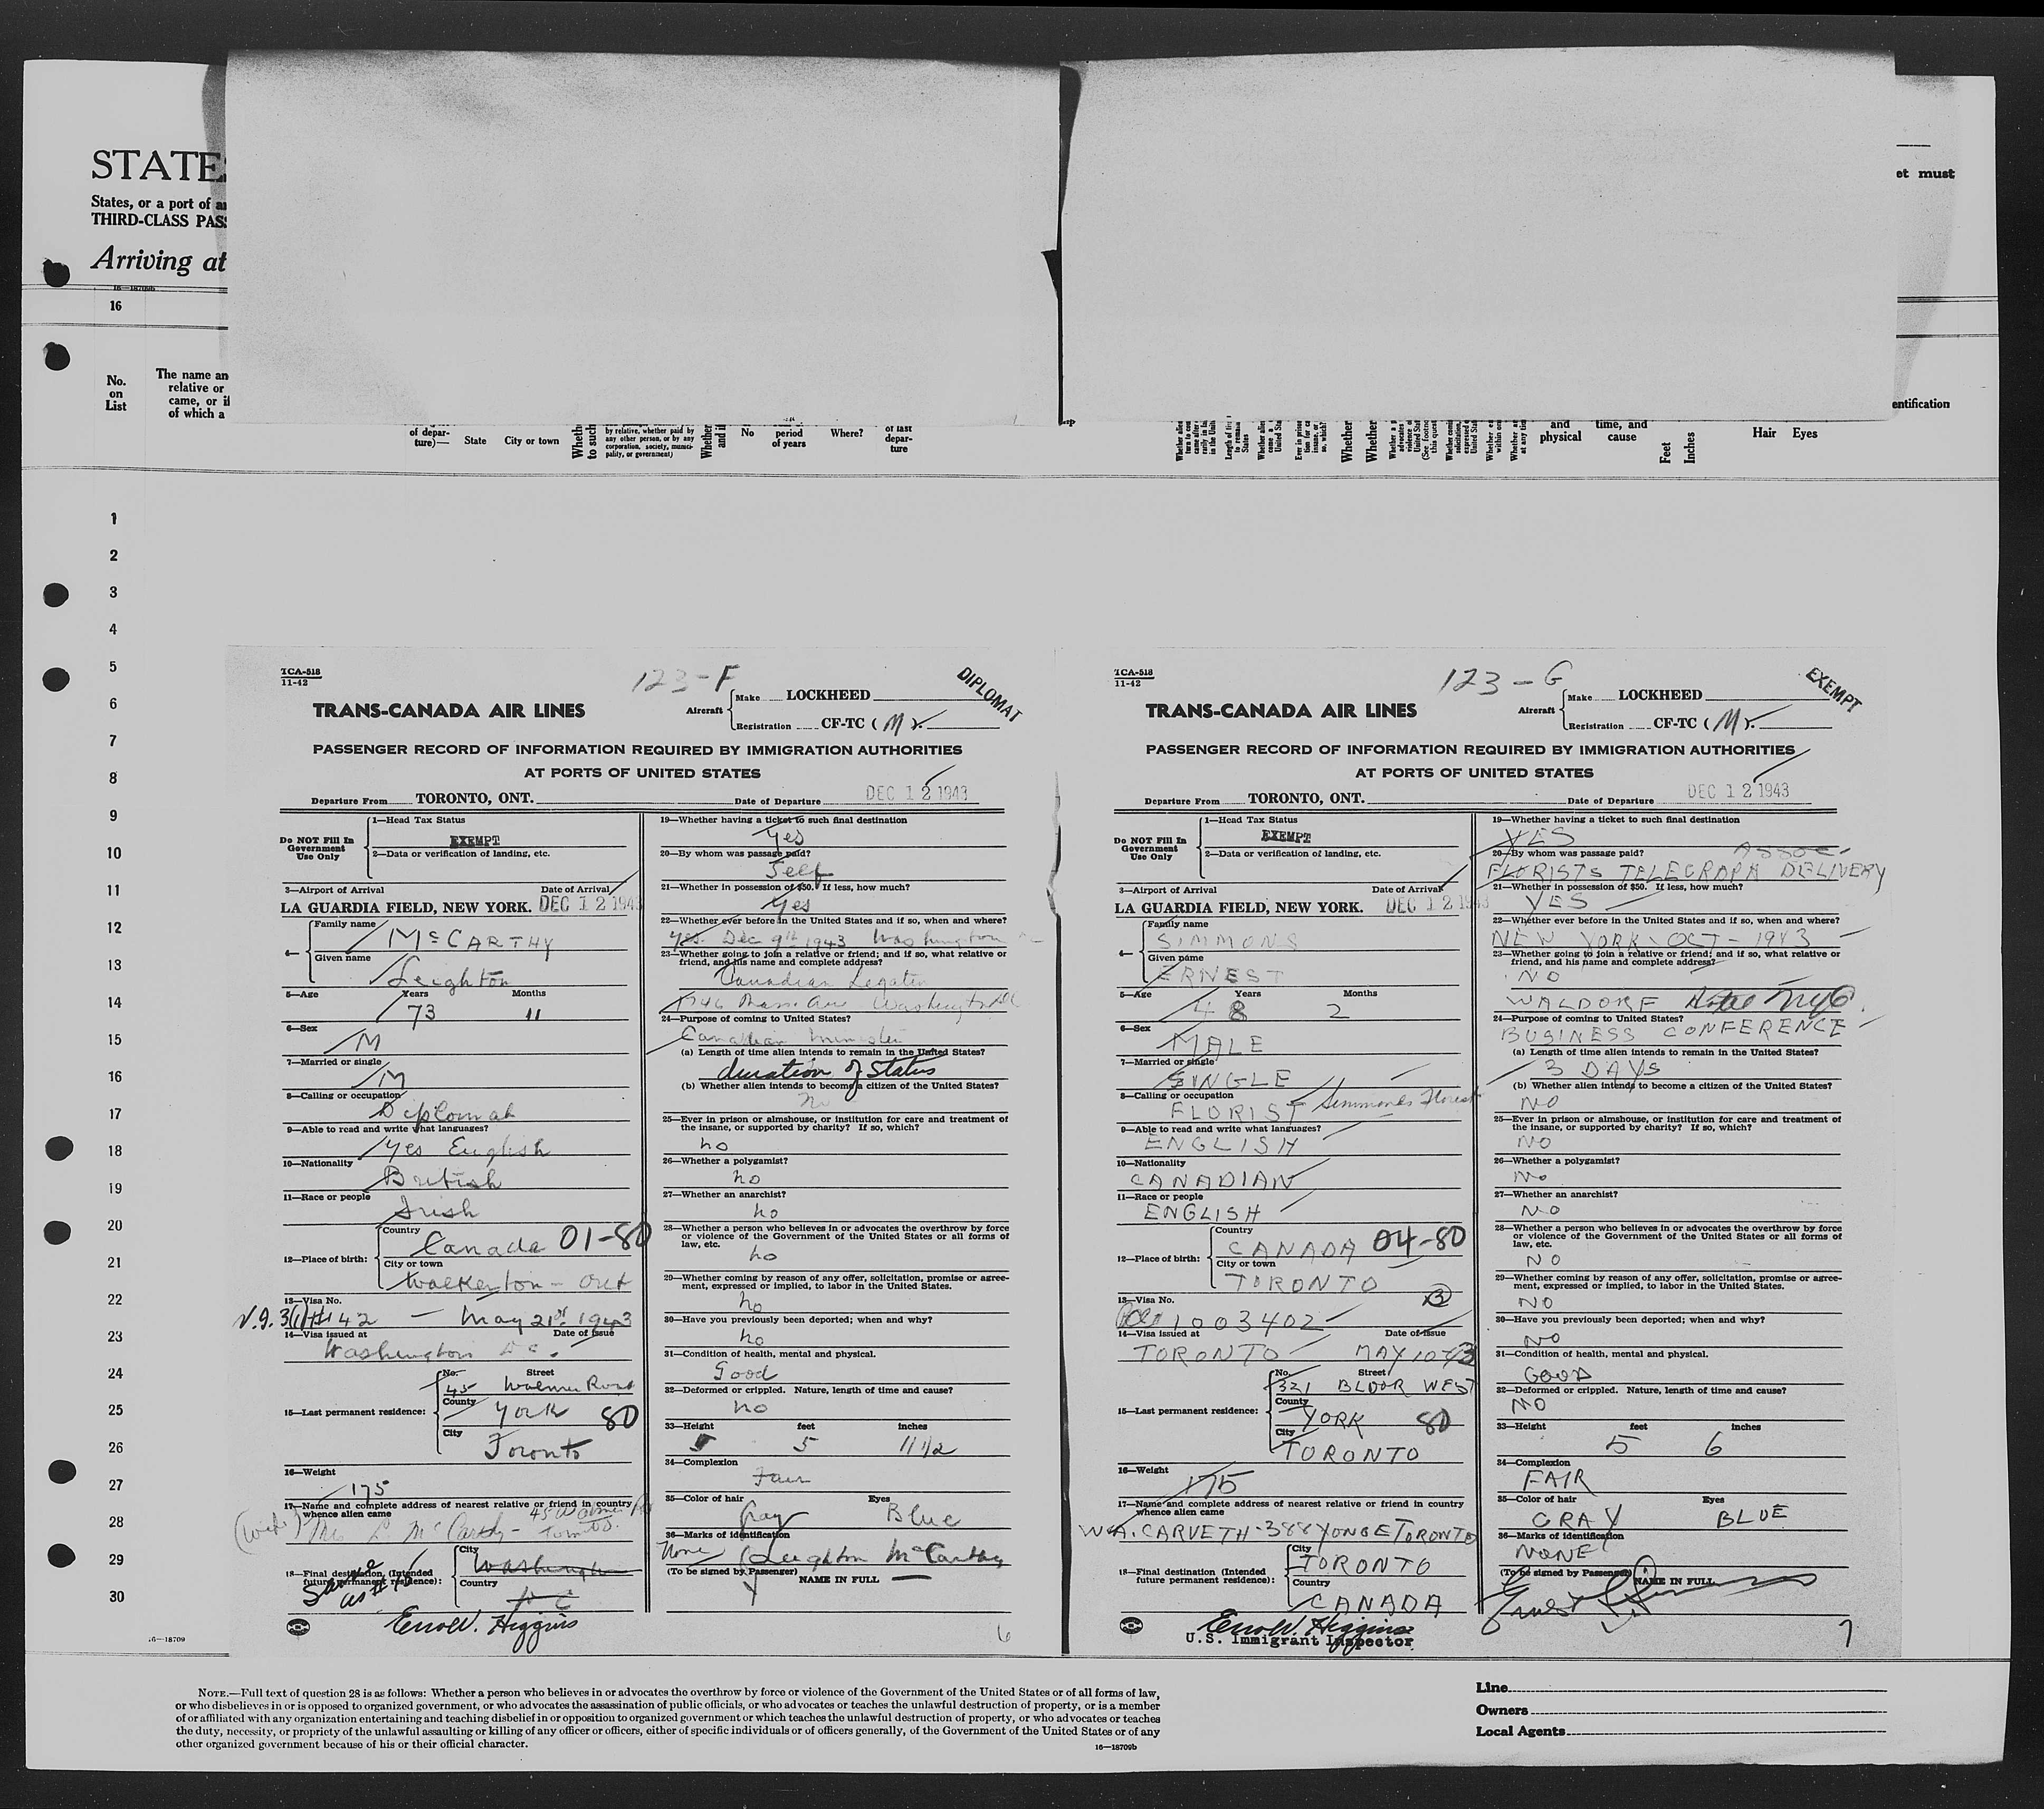 STATE
States, or a port of
THIRD-CLASS PAS
Arriving at
et must
16
No.
on
List
The name an
relative or
came, or if
of which a
entification
of depar-
ture)—
State
City or town
by relative, whether paid by
any other person, or by any
corporation, society, munici-
pality, or government)
No
period
of years
Where?
of last
depar-
ture
and
physical
time, and
cause
Feet
Inches
Hair Eyes
1
2
3
4
5
6
7
8
9
10
11
12
13
14
15
16
17
18
19
20
21
22
23
24
25
26
27
28
29
30
16—18709
TCA-518
11-42
123-F
DIPLOMAT
TRANS-CANADA AIR LINES
Aircraft
Make LOCKHEED
Registration CF-TC (M).
PASSENGER RECORD OF INFORMATION REQUIRED BY IMMIGRATION AUTHORITIES
AT PORTS OF UNITED STATES
Departure From TORONTO, ONT. Date of Departure DEC 12 1943
Do NOT Fill In
Government
Use Only
1—Head Tax Status
EXEMPT
2—Data or verification of landing, etc.
3—Airport of Arrival Date of Arrival
LA GUARDIA FIELD, NEW YORK. DEC 12 1943
4—
Family name
McCARTHY
Given name
Leighton
5—Age Years Months
73 11
6—Sex
M
7—Married or single
M
8—Calling or occupation
Diplomat
9—Able to read and write what languages?
Yes English
10—Nationality
British
11—Race or people
Irish
12—Place of birth:
Country
Canada 01-80
City or town
Walkerton - Ont
13—Visa No.
42 — May 21st 1943
14—Visa issued at Date of issue
Washington D.C.
15—Last permanent residence:
No. Street
45 Walmer Road
County
York 80
City
Toronto
16—Weight
175
17—Name and complete address of nearest relative or friend in country
whence alien came
45 Walmer Rd
(Wife) Mrs L McCarthy - Toronto.
18—Final destination, (Intended
future permanent residence):
Same
as # 15
City
Washington
Country
D C
Errol W. Higgins
19—Whether having a ticket to such final destination
Yes
20—By whom was passage paid?
Self
21—Whether in possession of $50. If less, how much?
Yes
22—Whether ever before in the United States and if so, when and where?
Yes. Dec 9th 1943 Washington
23—Whether going to join a relative or friend; and if so, what relative or
friend, and his name and complete address?
Canadian Legation
1746 Mass Ave Washington DC
24—Purpose of coming to United States?
Canadian Minister
(a) Length of time alien intends to remain in the United States?
duration of Status
(b) Whether alien intends to become a citizen of the United States?
no
25—Ever in prison or almshouse, or institution for care and treatment of
the insane, or supported by charity? If so, which?
no
26—Whether a polygamist?
no
27—Whether an anarchist?
no
28—Whether a person who believes in or advocates the overthrow by force
or violence of the Government of the United States or all forms of
law, etc.
no
29—Whether coming by reason of any offer, solicitation, promise or agree-
ment, expressed or implied, to labor in the United States.
no
30—Have you previously been deported; when and why?
no
31—Condition of health, mental and physical.
Good
32—Deformed or crippled. Nature, length of time and cause?
no
33—Height feet inches
5 11 1/2
34—Complexion
Fair
35—Color of hair Eyes
Gray Blue
36—Marks of identification
None Leighton McCarthy
(To be signed by Passenger) NAME IN FULL
6
TCA-518
11-42
123-G
EXEMPT
TRANS-CANADA AIR LINES
Aircraft
Make LOCKHEED
Registration CF-TC (M).
PASSENGER RECORD OF INFORMATION REQUIRED BY IMMIGRATION AUTHORITIES
AT PORTS OF UNITED STATES
Departure From TORONTO, ONT. Date of Departure DEC 12 1943
Do NOT Fill In
Government
Use Only
1—Head Tax Status
EXEMPT
2—Data or verification of landing, etc.
3—Airport of Arrival Date of Arrival
LA GUARDIA FIELD, NEW YORK. DEC 12 1943
4—
Family name
SIMMONS
Given name
ERNEST
5—Age Years Months
48 2
6—Sex
MALE
7—Married or single
SINGLE
8—Calling or occupation
FLORIST Simmonds Florist
9—Able to read and write what languages?
ENGLISH
10—Nationality
CANADIAN
11—Race or people
ENGLISH
12—Place of birth:
Country
CANADA 04-80
City or town
TORONTO
13—Visa No.
1003402
14—Visa issued at Date of issue
TORONTO MAY 10 43
15—Last permanent residence:
No. Street
321 BLOOR WEST
County
YORK 80
City
TORONTO
16—Weight
175
17—Name and complete address of nearest relative or friend in country
whence alien came
W.A. CARVETH - 388 YONGE TORONTO
18—Final destination (Intended
future permanent residence):
City
TORONTO
Country
CANADA
Errol W. Higgins
U.S. Immigrant Inspector
19—Whether having a ticket to such final destination
YES
20—By whom was passage paid? ASSOC.
FLORISTS TELEGRAPH DELIVERY
21—Whether in possession of $50. If less, how much?
YES
22—Whether ever before in the United States and if so, when and where?
NEW YORK - OCT - 1943
23—Whether going to join a relative or friend; and if so, what relative or
friend, and his name and complete address?
NO
WALDORF Hotel NYC
24—Purpose of coming to United States?
BUSINESS CONFERENCE
(a) Length of time alien intends to remain in the United States?
3 DAYS
(b) Whether alien intends to become a citizen of the United States?
NO
25—Ever in prison or almshouse, or institution for care and treatment of
the insane, or supported by charity? If so, which?
NO
26—Whether a polygamist?
NO
27—Whether an anarchist?
NO
28—Whether a person who believes in or advocates the overthrow by force
or violence of the Government of the United States or all forms of
law, etc.
NO
29—Whether coming by reason of any offer, solicitation, promise or agree-
ment, expressed or implied, to labor in the United States.
NO
30—Have you previously been deported; when and why?
NO
31—Condition of health, mental and physical.
GOOD
32—Deformed or crippled. Nature, length of time and cause?
NO
33—Height feet inches
5 6
34—Complexion
FAIR
35—Color of hair Eyes
GRAY BLUE
36—Marks of identification
NONE
(To be signed by Passenger) NAME IN FULL
Ernest Simmons
7
NOTE.—Full text of question 28 is as follows: Whether a person who believes in or advocates the overthrow by force or violence of the Government of the United States or of all forms of law,
or who disbelieves in or is opposed to organized government, or who advocates the assassination of public officials, or who advocates or teaches the unlawful destruction of property, or is a member
of or affiliated with any organization entertaining and teaching disbelief in or opposition to organized government or which teaches the unlawful destruction of property, or who advocates or teaches
the duty, necessity, or propriety of the unlawful assaulting or killing of any officer or officers, either of specific individuals or of officers generally, of the Government of the United States or of any
other organized government because of his or their official character.
16—18709b
Line
Owners
Local Agents